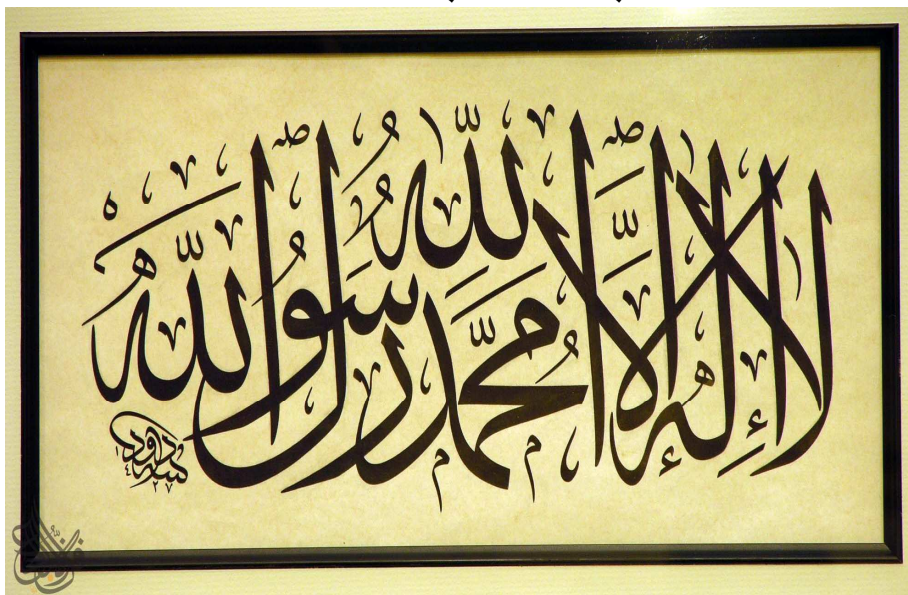 لَا إِلٰهَ إِلَّا اللّٰهُ مُحَمَّدٌ رَسُولُ اللّٰهِ
داود